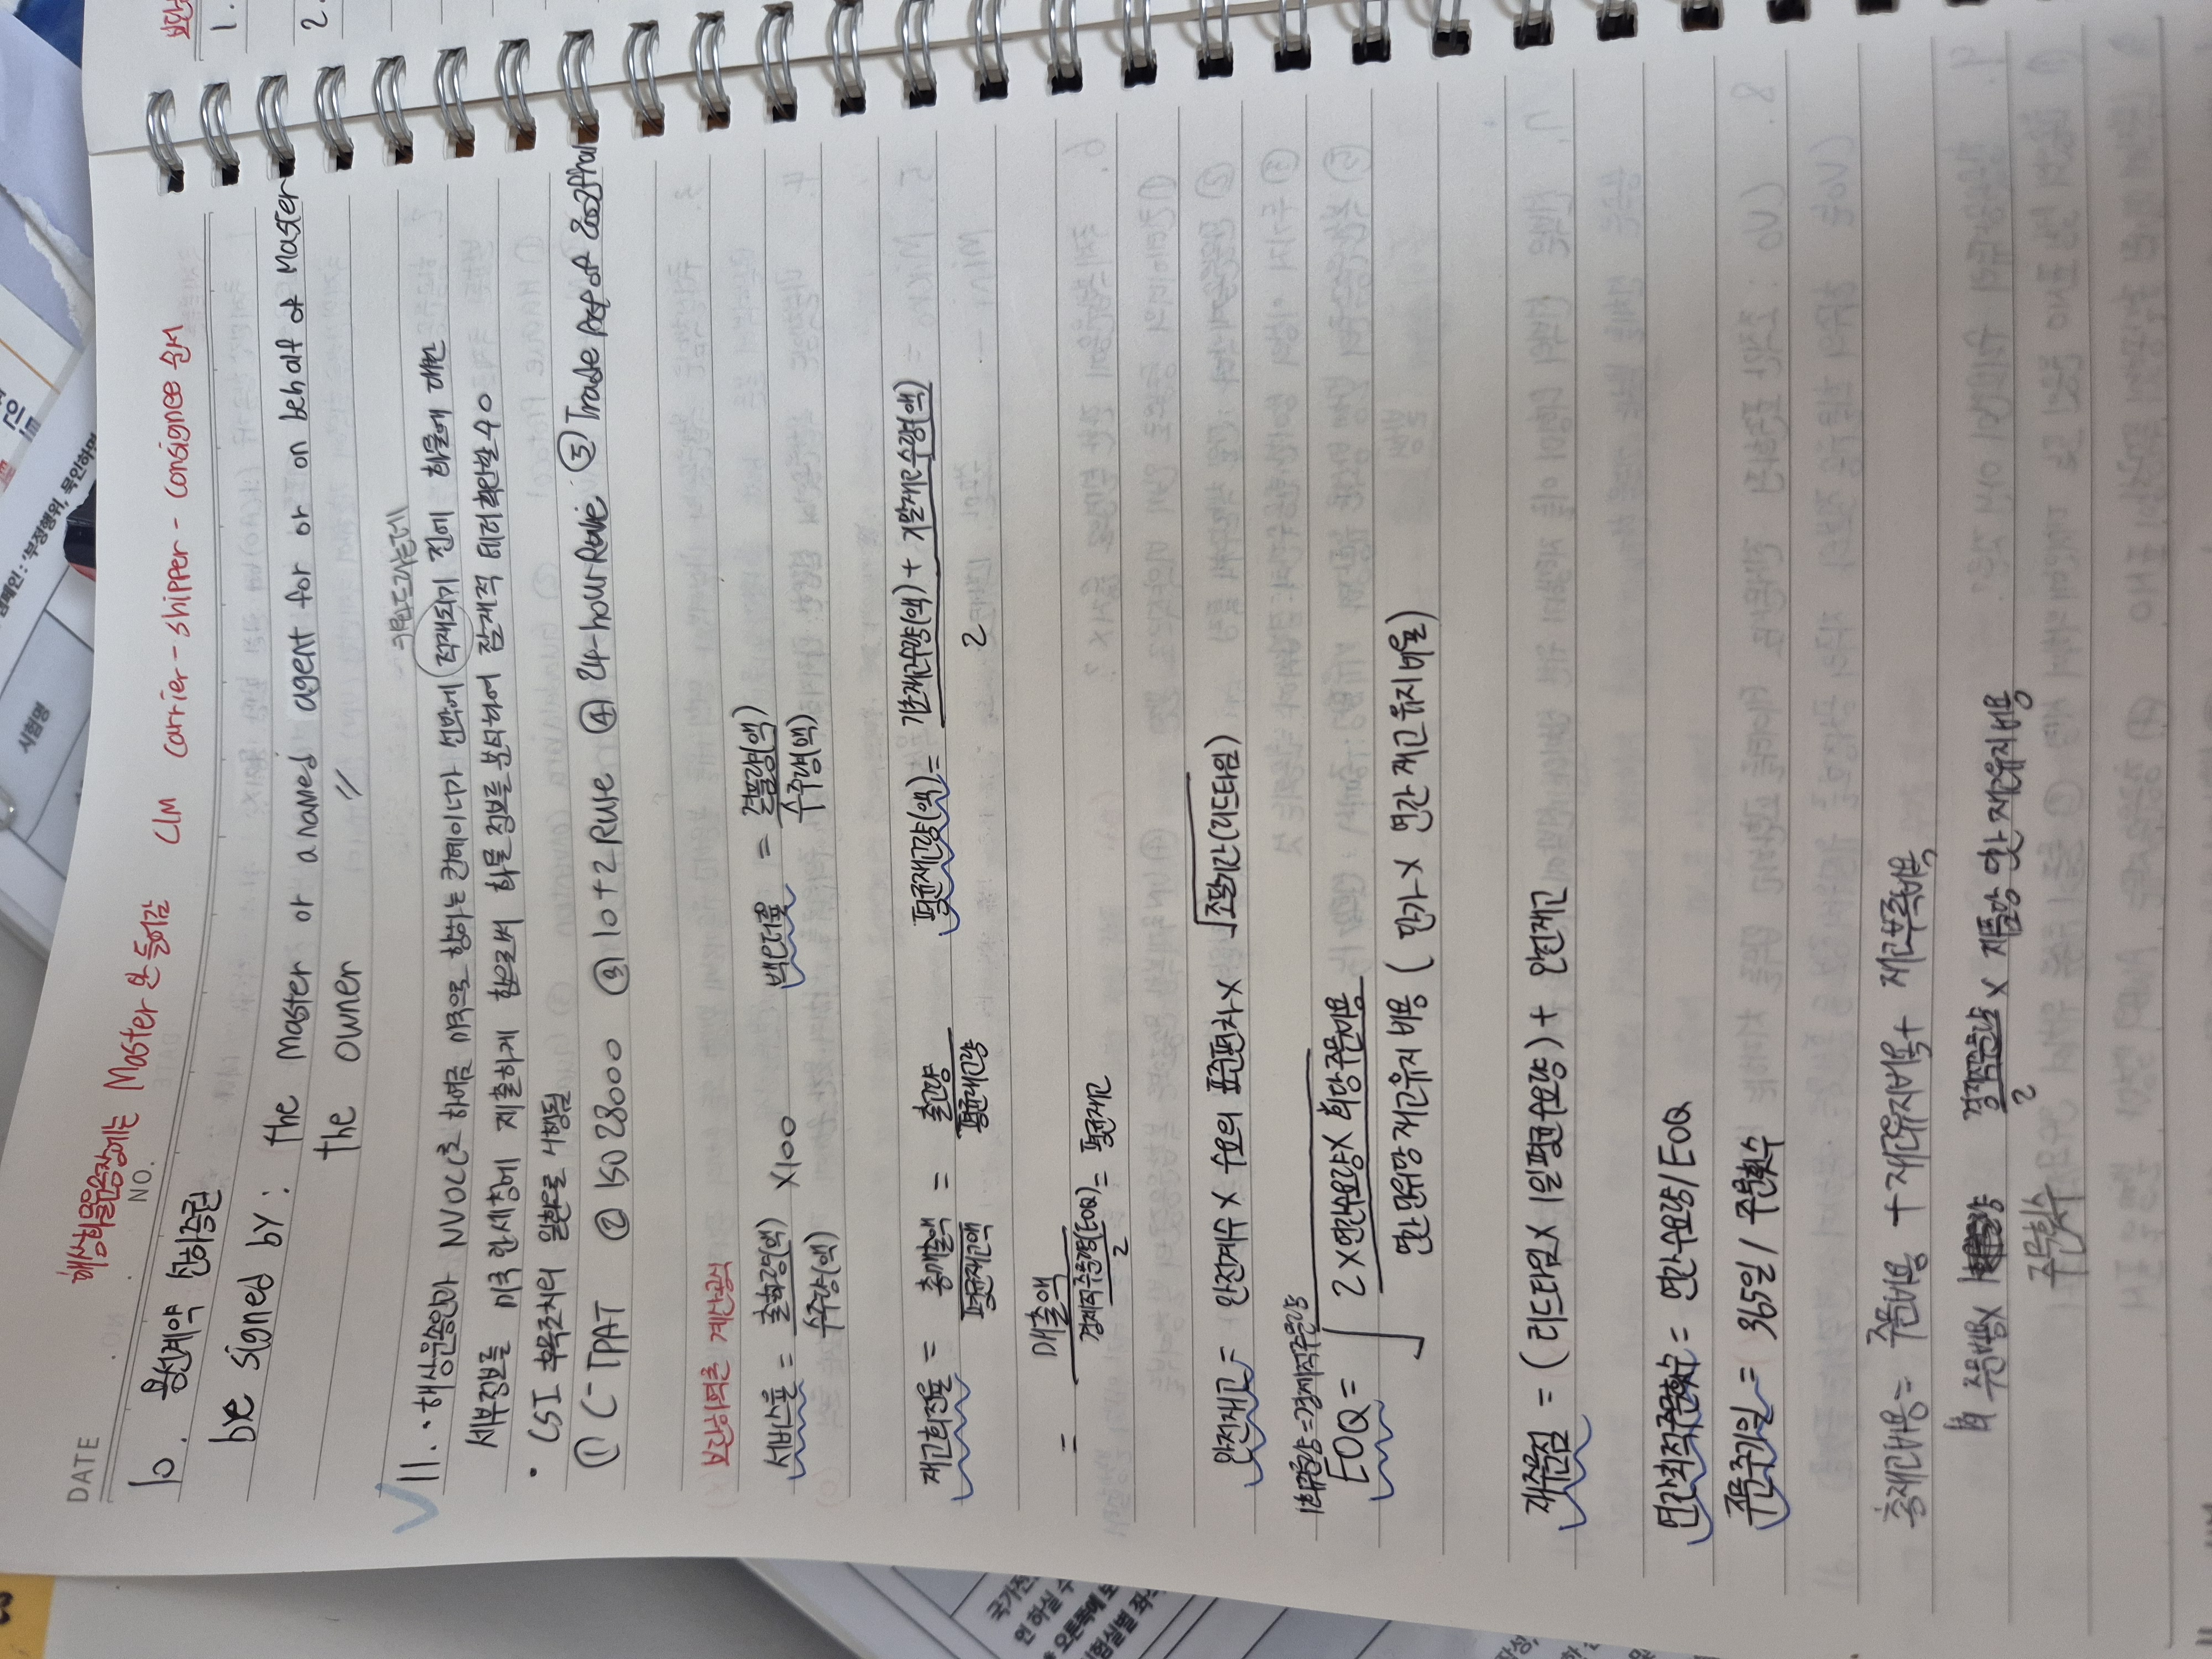 해상화물운송장에는 Master 안 들어감 CIM carrier - shipper - consignee 순서
DATE NO.
10. 용선계약 선하증권
be signed by : the Master or a named agent for or on behalf of Master
the owner 〃
11. · 해상운송인과 NVOCC로 하여금 미국으로 향하는 컨테이너가 선박에 적재되기 전에 화물에 대한
세부정보를 미국 관세청에 제출하게 함으로써 화물 정보를 분석하여 잠재적 테러확인할 수 O
· CSI 후속조치의 일환으로 시행됨
① C-TPAT ② ISO 28000 ③ 10+2 Rule ④ 24-hour Rule ⑤ Trade Act of 2002 final
보관하역론 계산공식
서비스율 = 출하량(액) / 수주량(액) X100 백오더율 = 결품량(액) / 수주량(액)
재고회전율 = 총매출액 / 평균재고액 = 출고량 / 평균재고량 평균재고량(액) = 기초재고수량(액) + 기말재고수량(액) / 2
= 매출액 / 경제적주문량(EOQ) / 2 = 평균재고
안전재고 = 안전계수 X 수요의 표준편차 X √조달기간(리드타임)
EOQ = √ 2 X 연간수요량 X 회당주문비용
연간 단위당 재고유지 비용 ( 단가 X 연간 재고유지비율)
재주문점 = (리드타임 X 일평균수요량) + 안전재고
연간최적주문횟수 = 연간수요량 / EOQ
주문주기일 = 365일 / 주문횟수
총재고비용 = 주문비용 + 재고유지비용 + 재고부족비용
주문비용 X 주문횟수 경제적주문량 / 2 X 제품당 연간 재고유지비용